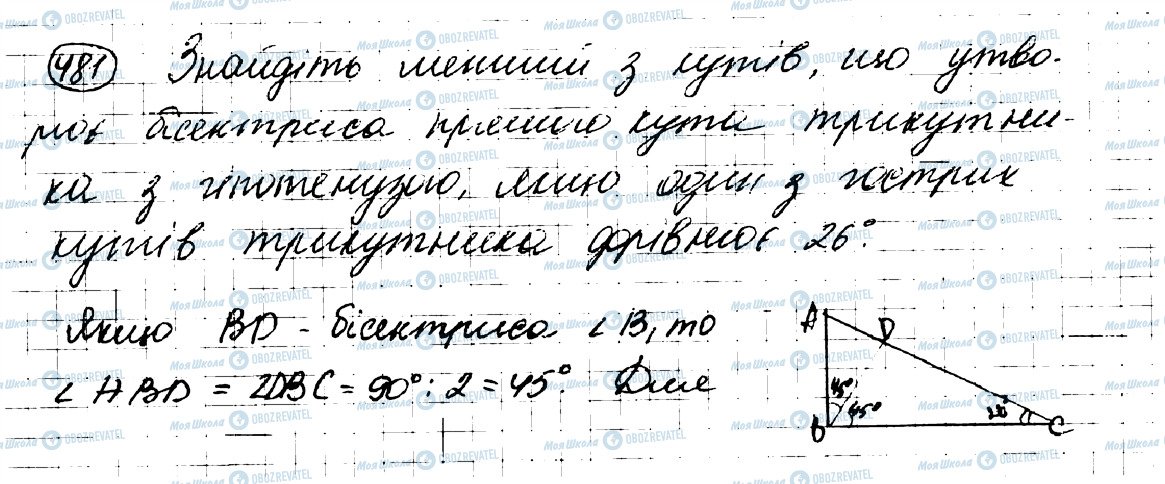 481 Знайдіть менший з кутів, що утво-
рює бісектриса прямого кута трикутни-
ка з гіпотенузою, якщо один з гострих
кутів трикутника дорівнює 26°.
Якщо BD - бісектриса ∠B, то
∠ABD = ∠DBC = 90° : 2 = 45°. Для
A D
45°
45° 26°
B C